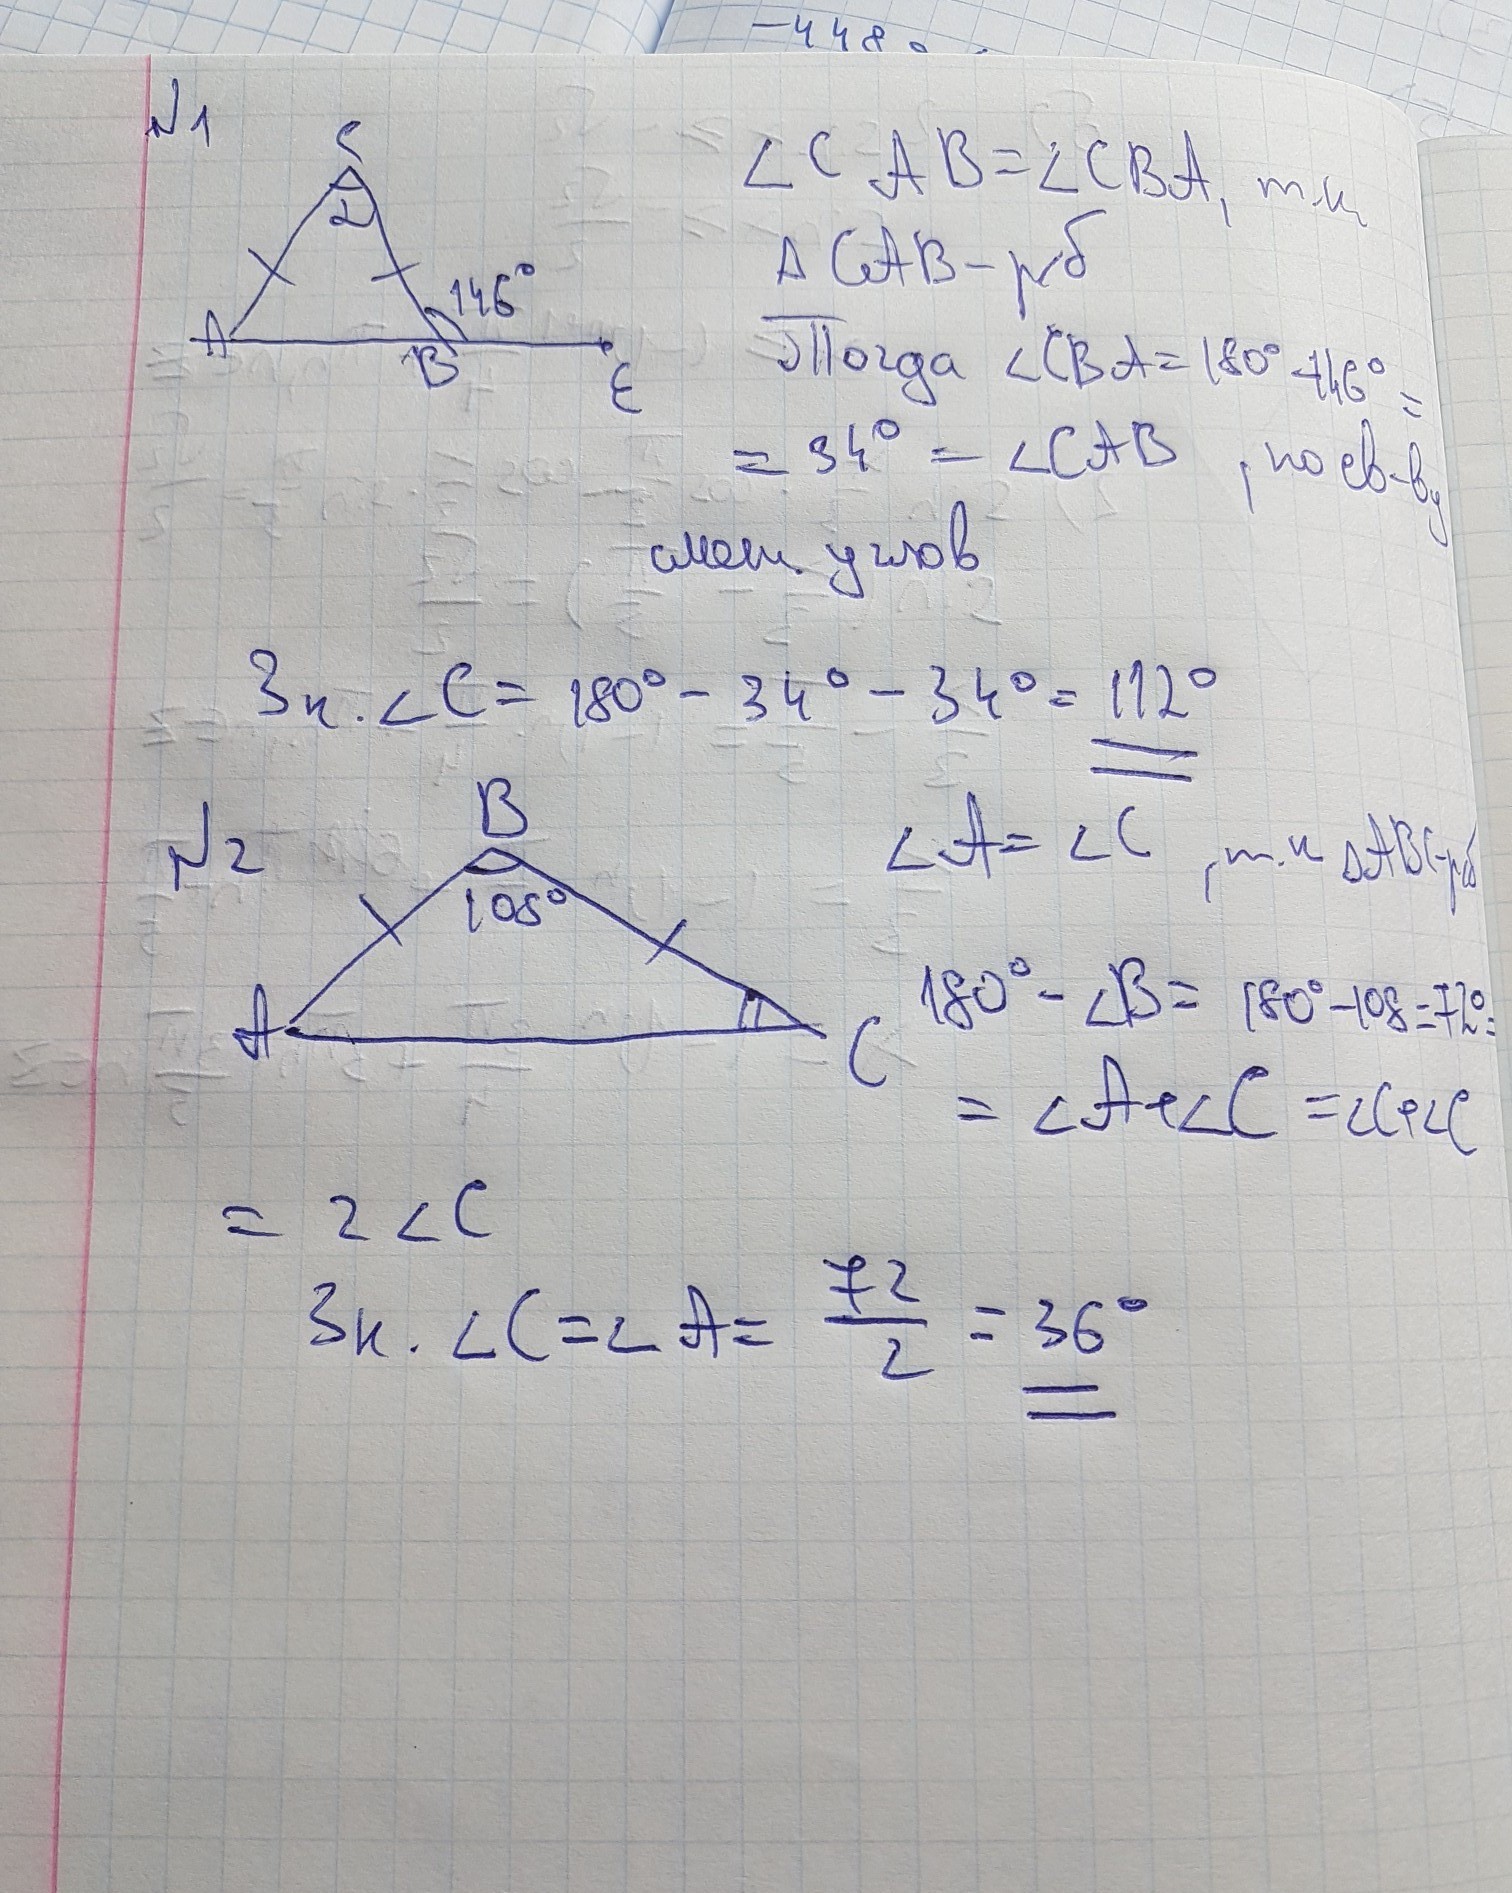 -448
N1
C
2
146°
A
B
E
∠CAB=∠CBA, т.к
△CAB-рб
Тогда ∠CBA=180°-146°=
=34°=∠CAB, по св-ву
смеж. углов
Зн. ∠C=180°-34°-34°=112°
N2
B
108°
A
C
∠A=∠C, т.к △ABC-рб
180°-∠B=180°-108=72°=
=∠A+∠C=∠C+∠C
=2∠C
Зн. ∠C=∠A=72/2=36°